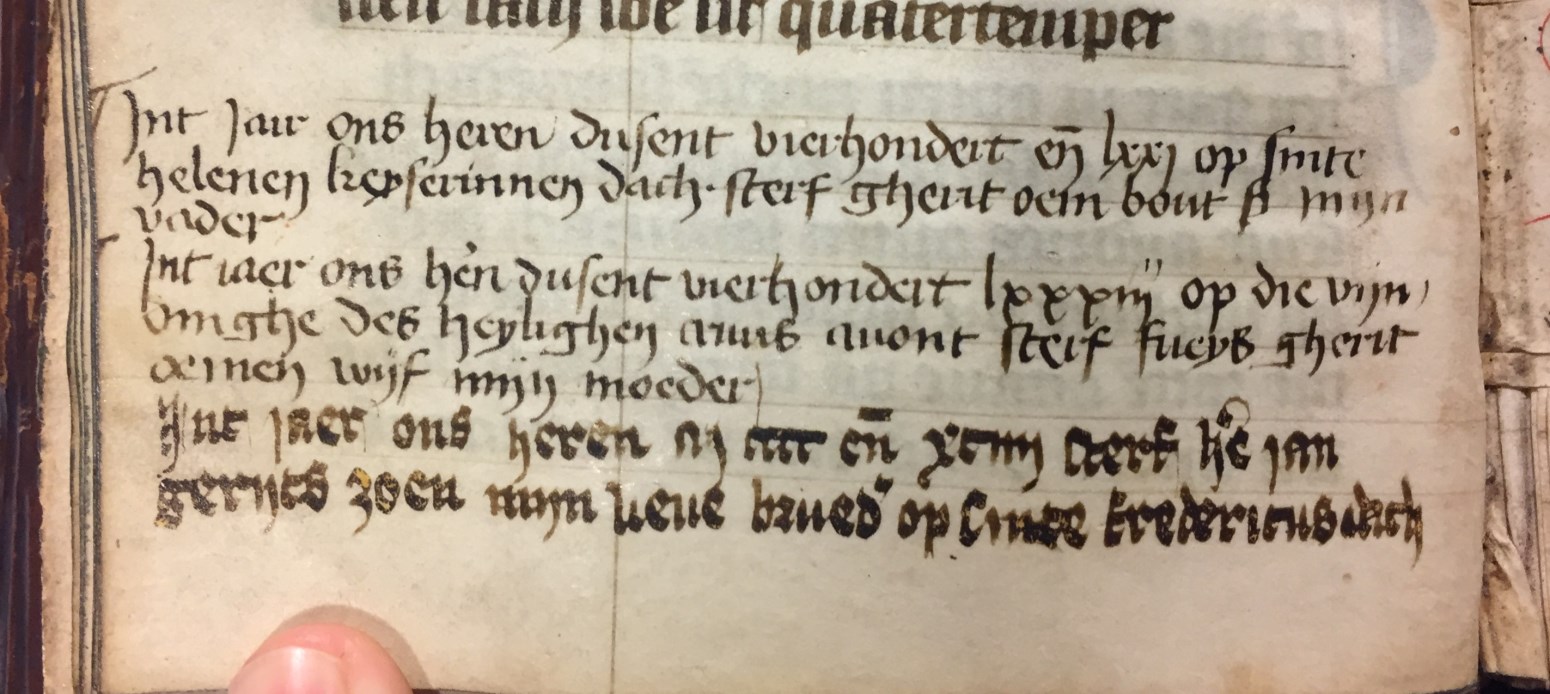 quatertemper
Int Jair ons heren dusent vierhondert en̄ lxxj op sinte
helenen keyserinnen dach · sterf gherit oem bout mijn
vader
Int iaer ons hēn dusent vierhondert lxxxiij op die vijn
dinghe des heylighen cruus auont sterf gherit
oemen wijf mijn moeder
Int jaer ons heren mcccc en̄ xciiij sterf he jan
gerijts zoen mijn lieue brued' op sinte fredericus dach